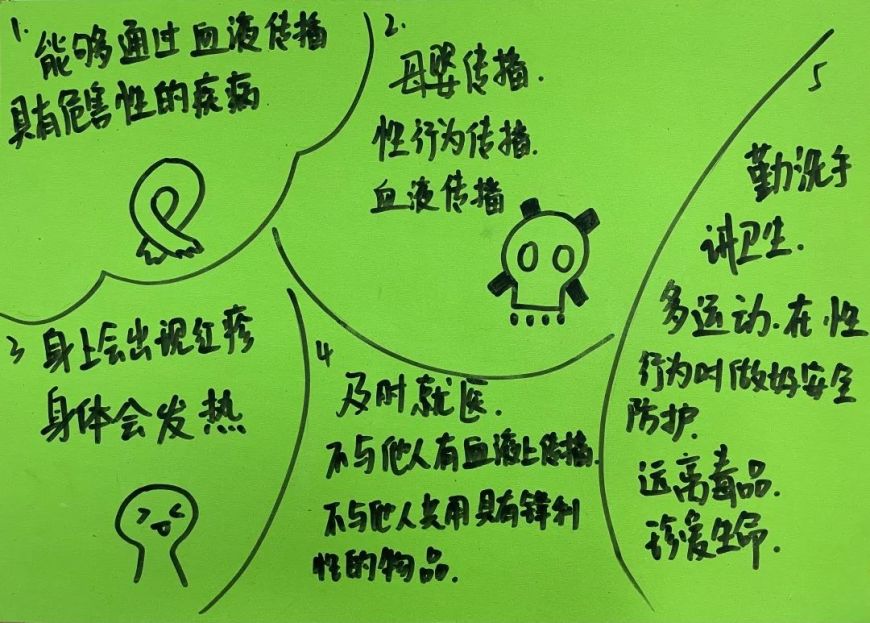 1.
能够通过血液传播
具有危害性的疾病
2.
母婴传播.
性行为传播.
血液传播
3
身上会出现红疹
身体会发热
4
及时就医.
不与他人有血液上传播.
不与他人共用具有锋利
性的物品.
5
勤洗手
讲卫生.
多运动.在性
行为叫做好安全
防护.
远离毒品.
珍爱生命.